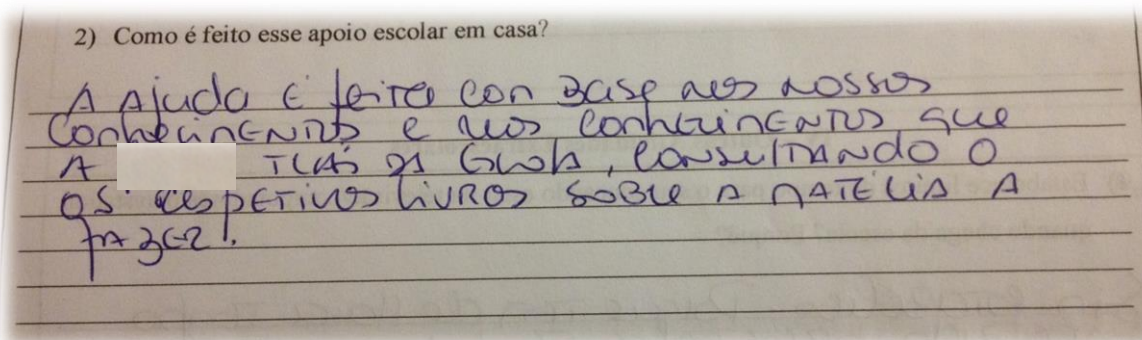 2) Como é feito esse apoio escolar em casa?
A Ajuda é feita con Base nos nossos
Conhecimentos e nos conhecimentos que
A TRÁS DA escola, consultando o
os respetivos livros sobre A matéria A
fazer.